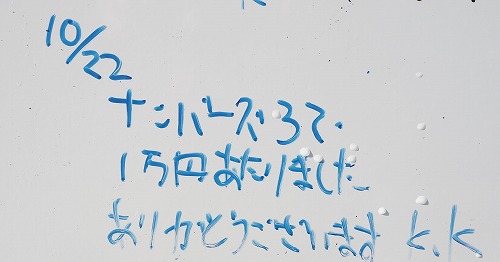 10/22
ナンバーズ3で
1万円あたりました
ありがとうございます K.K